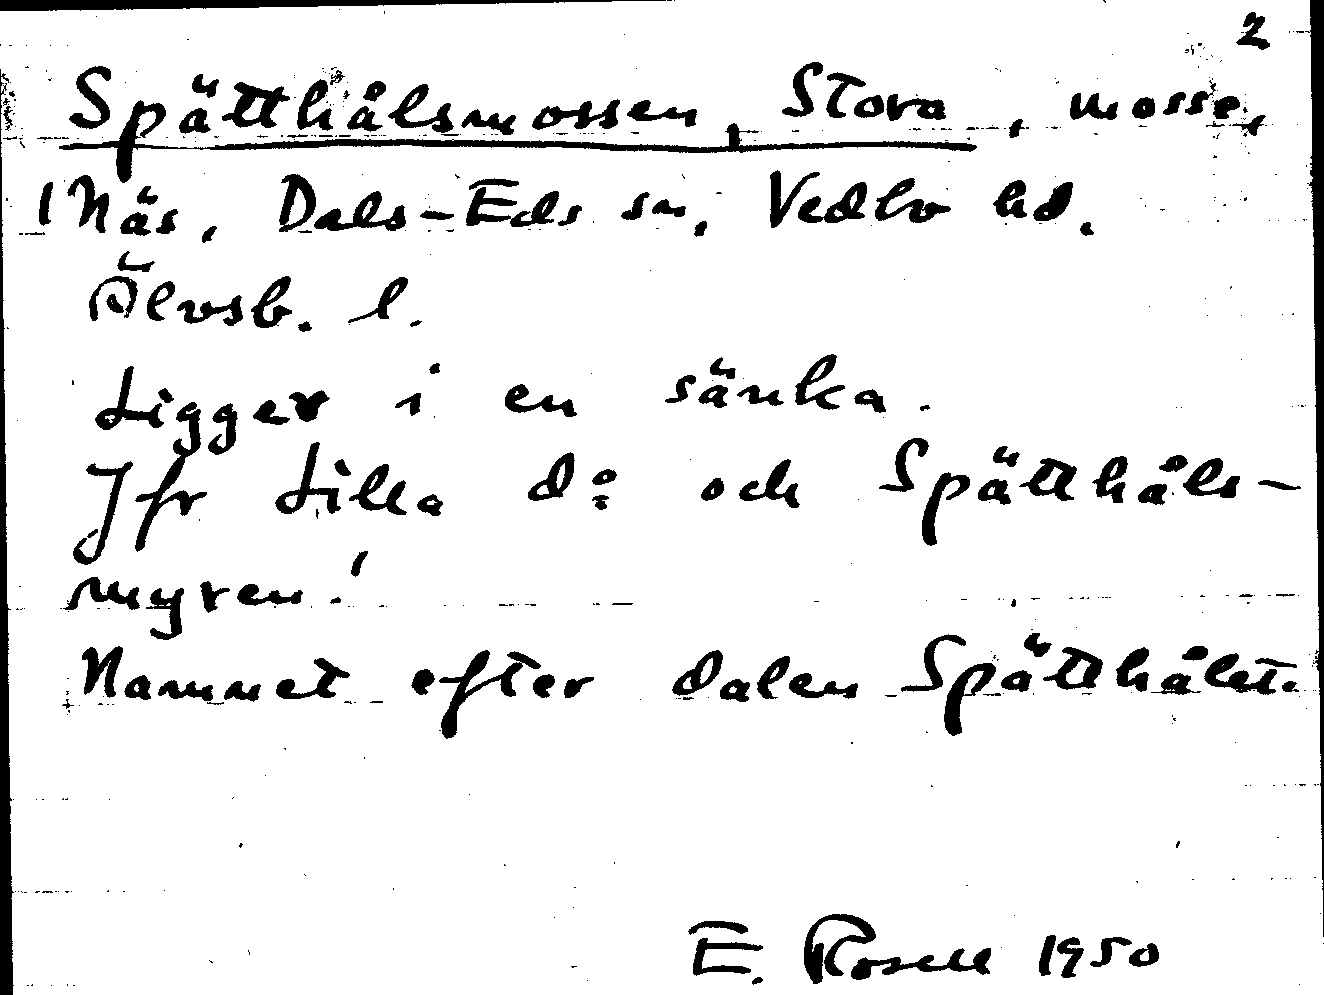 2
Spätthålsmossen, Stora, mosse,
1 Näs, Dals-Eds sn, Vedbo hd.
Älvsb. l.
Ligger i en sänka.
Jfr Lilla d:o och Spätthåls-
myren!
Namnet efter dalen Spätthålet.
E. Rosell 1950